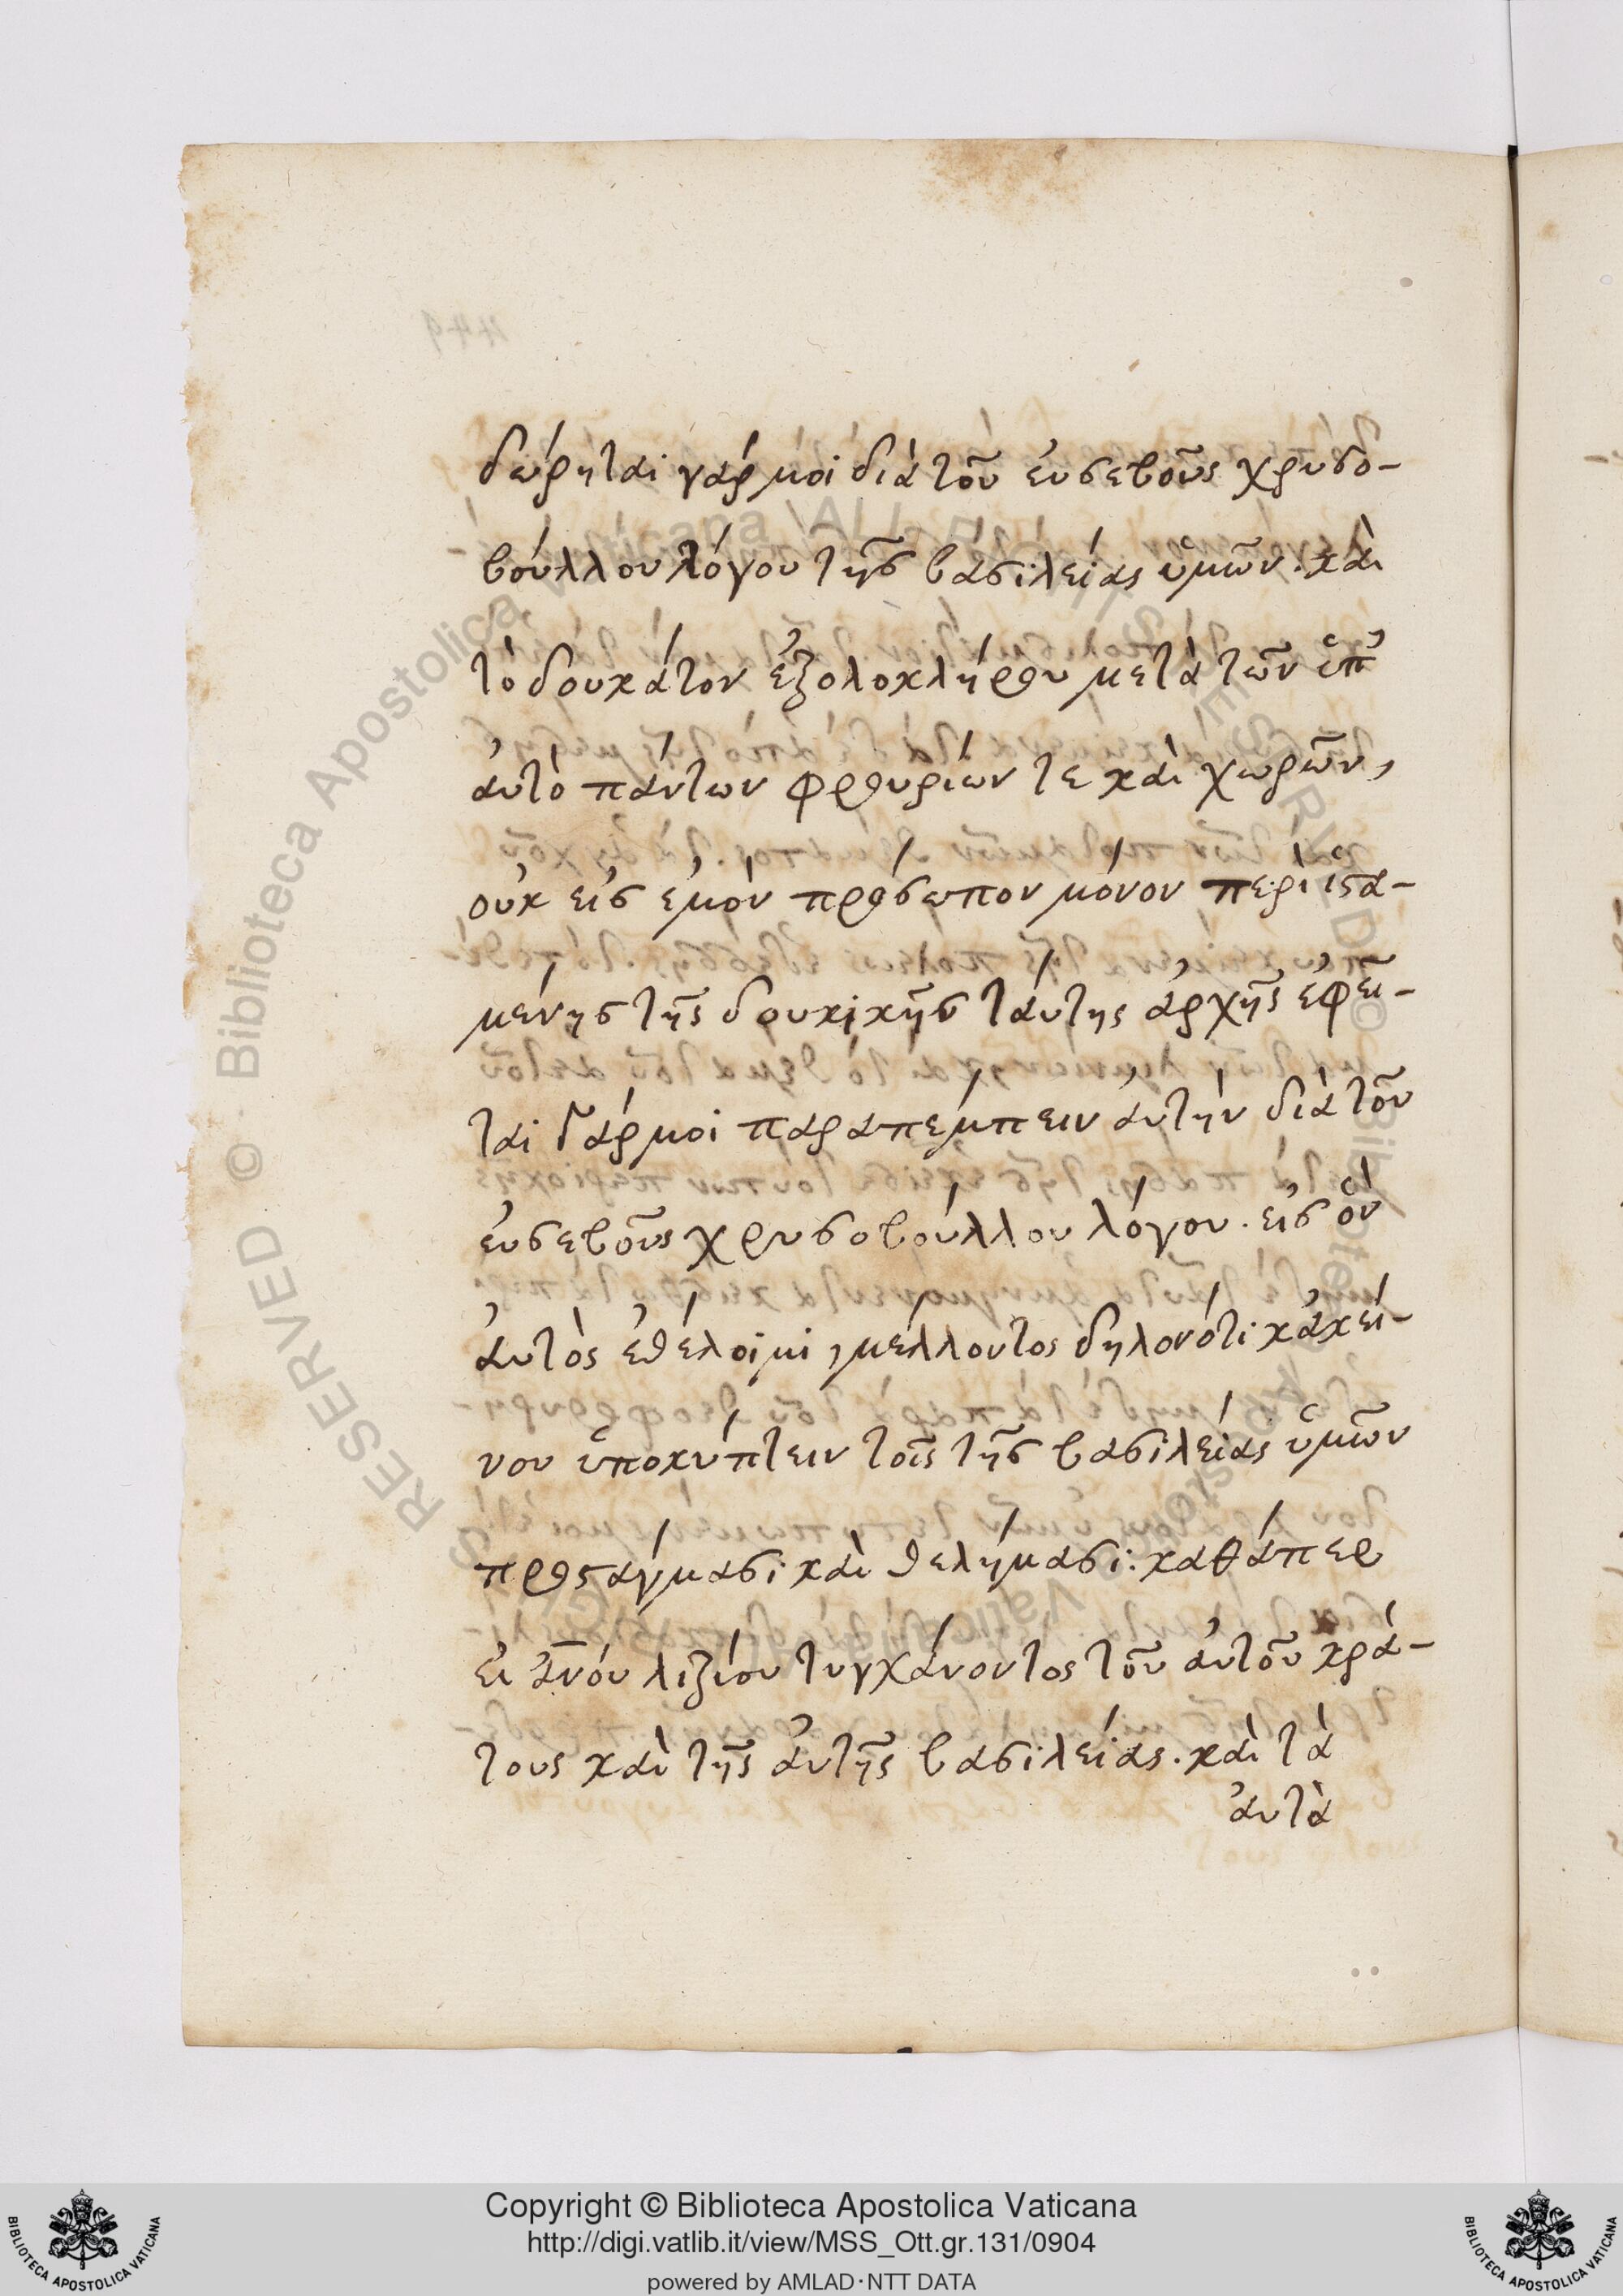 δώρηται γάρ μοι διὰ τοῦ εὐσεβοῦς χρυσο-
βούλλου λόγου τῆς βασιλείας ὑμῶν. καὶ
τὸ δουκάτον ἐξολοκλήρου μετὰ τῶν ὑπ'
αὐτὸ πάντων φρουρίων τε καὶ χωρῶν,
οὐκ εἰς ἐμὸν πρόσωπον μόνον περιϊστα-
μένης τῆς δουκικῆς ταύτης ἀρχῆς ἐφεῖ-
ται γάρ μοι παραπέμπειν αὐτὴν διὰ τοῦ
εὐσεβοῦς χρυσοβούλλου λόγου. εἰς ὃν
αὐτὸς ἐθέλοιμι, μέλλοντος δηλονότι κἀκεί-
νου ὑποκύπτειν τοῖς τῆς βασιλείας ὑμῶν
προστάγμασι καὶ θελήμασι: καθάπερ
εἰ ἀνόυ λιζίου τυγχάνοντος τοῦ αὐτοῦ κρά-
τους καὶ τῆς αὐτῆς βασιλείας. καὶ τὰ
αὐτὰ
449
RESERVED © Biblioteca Apostolica Vaticana
Copyright © Biblioteca Apostolica Vaticana
http://digi.vatlib.it/view/MSS_Ott.gr.131/0904
powered by AMLAD·NTT DATA
BIBLIOTECA APOSTOLICA VATICANA
BIBLIOTECA APOSTOLICA VATICANA